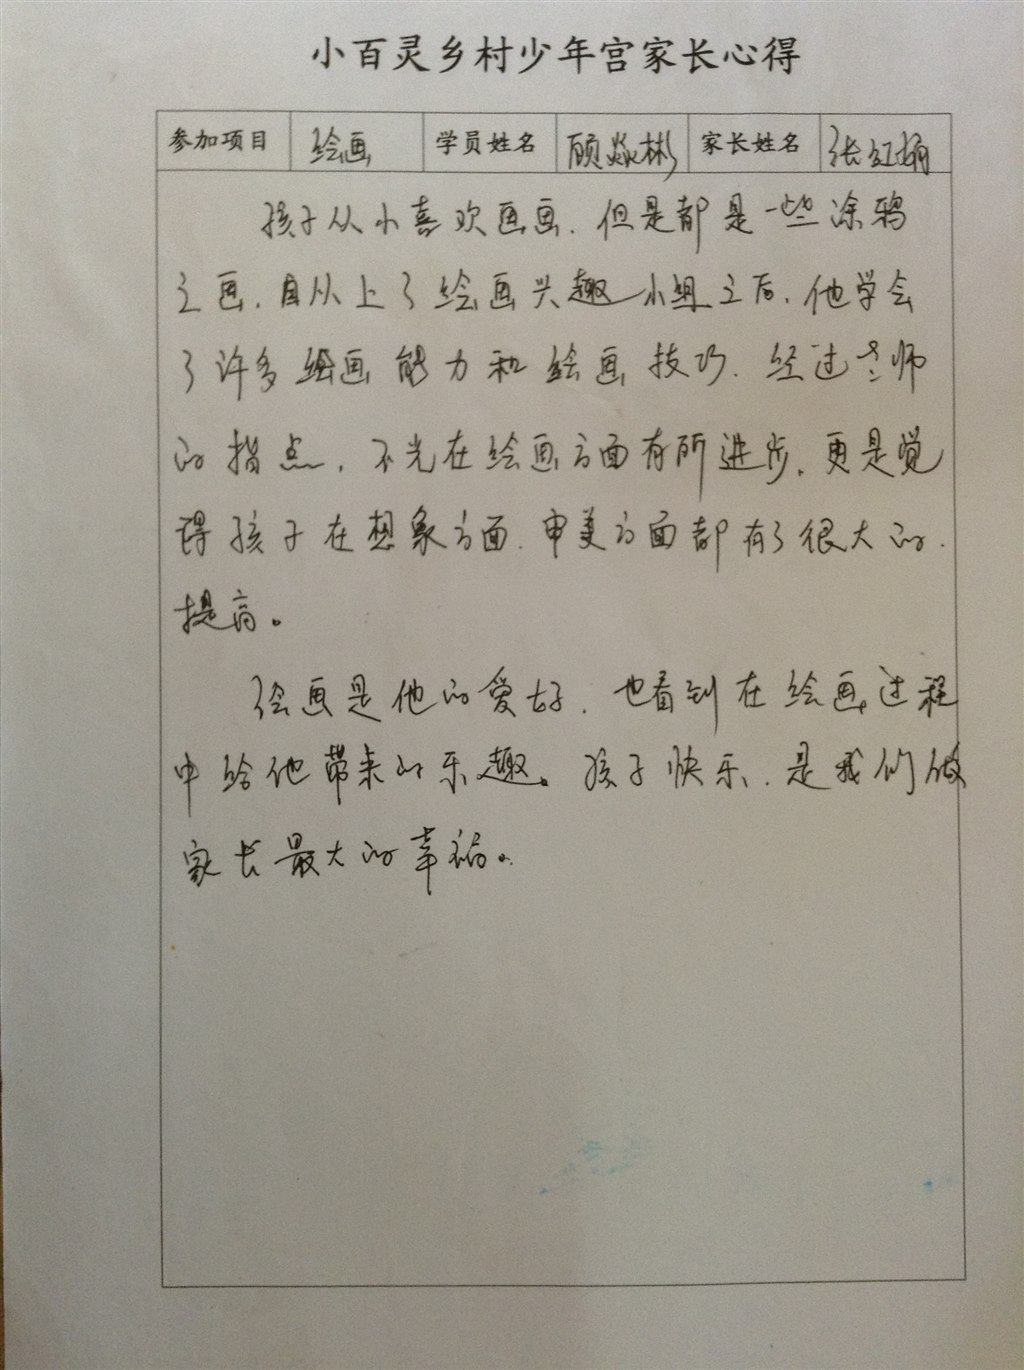 小百灵乡村少年宫家长心得
参加项目 绘画 学员姓名 顾焱彬 家长姓名 张红娟
孩子从小喜欢画画.但是都是一些涂鸦
之画.自从上了绘画兴趣小组之后.他学会
了许多绘画能力和绘画技巧.经过老师
的指点.不光在绘画方面有所进步.更是觉
得孩子在想象方面.审美方面都有了很大的.
提高。
绘画是他的爱好.也看到在绘画过程
中给他带来的乐趣。孩子快乐.是我们做
家长最大的幸福。